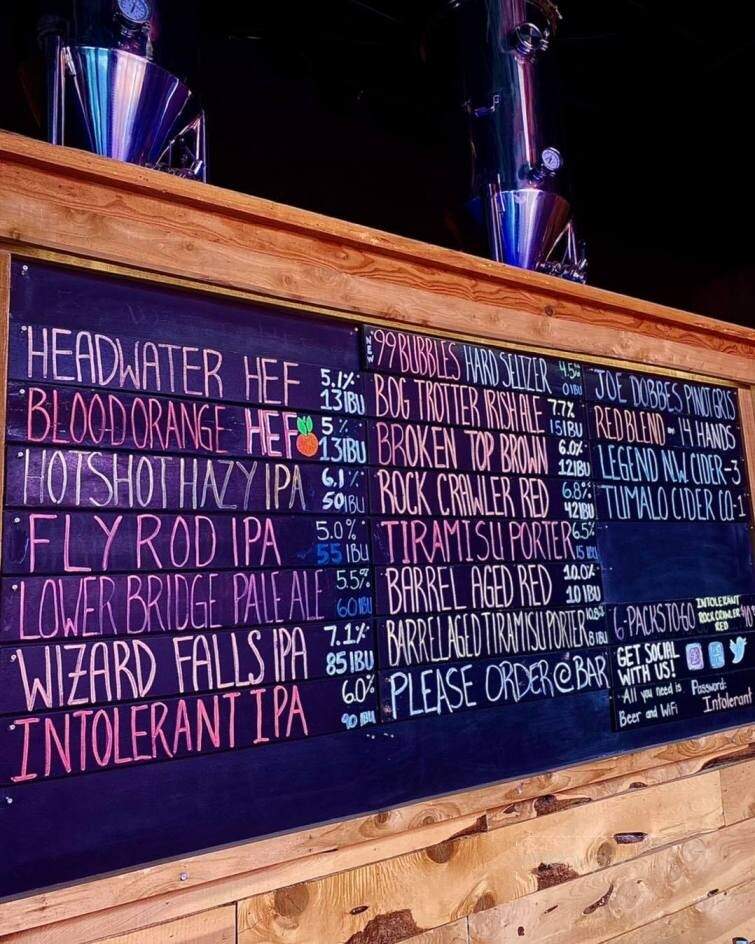 HEADWATER HEF 5.1% 13IBU
BLOOD ORANGE HEF 5% 13IBU
HOTSHOT HAZY IPA 6.1% 50IBU
FLY ROD IPA 5.0% 55 IBU
LOWER BRIDGE PALE ALE 5.5% 60IBU
WIZARD FALLS IPA 7.1% 85IBU
INTOLERANT IPA 6.0% 90 IBU
NEW 99 BUBBLES HARD SELTZER 4.5% 0IBU
BOG TROTTER IRISH ALE 7.7% 15IBU
BROKEN TOP BROWN 6.0% 12IBU
ROCK CRAWLER RED 6.8% 42IBU
TIRAMISU PORTER 6.5% 15 IBU
BARREL AGED RED 10.0% 10 IBU
BARREL AGED TIRAMISU PORTER 8IBU
PLEASE ORDER @ BAR
JOE DOBBES PINOT GRIS
RED BLEND - 14 HANDS
LEGEND N.W CIDER-3
TUMALO CIDER CO-1
6-PACKS TO GO INTOLERANT ROCK CRAWLER RED
GET SOCIAL
WITH US!
All you need is
Beer and WiFi
Password:
Intolerant